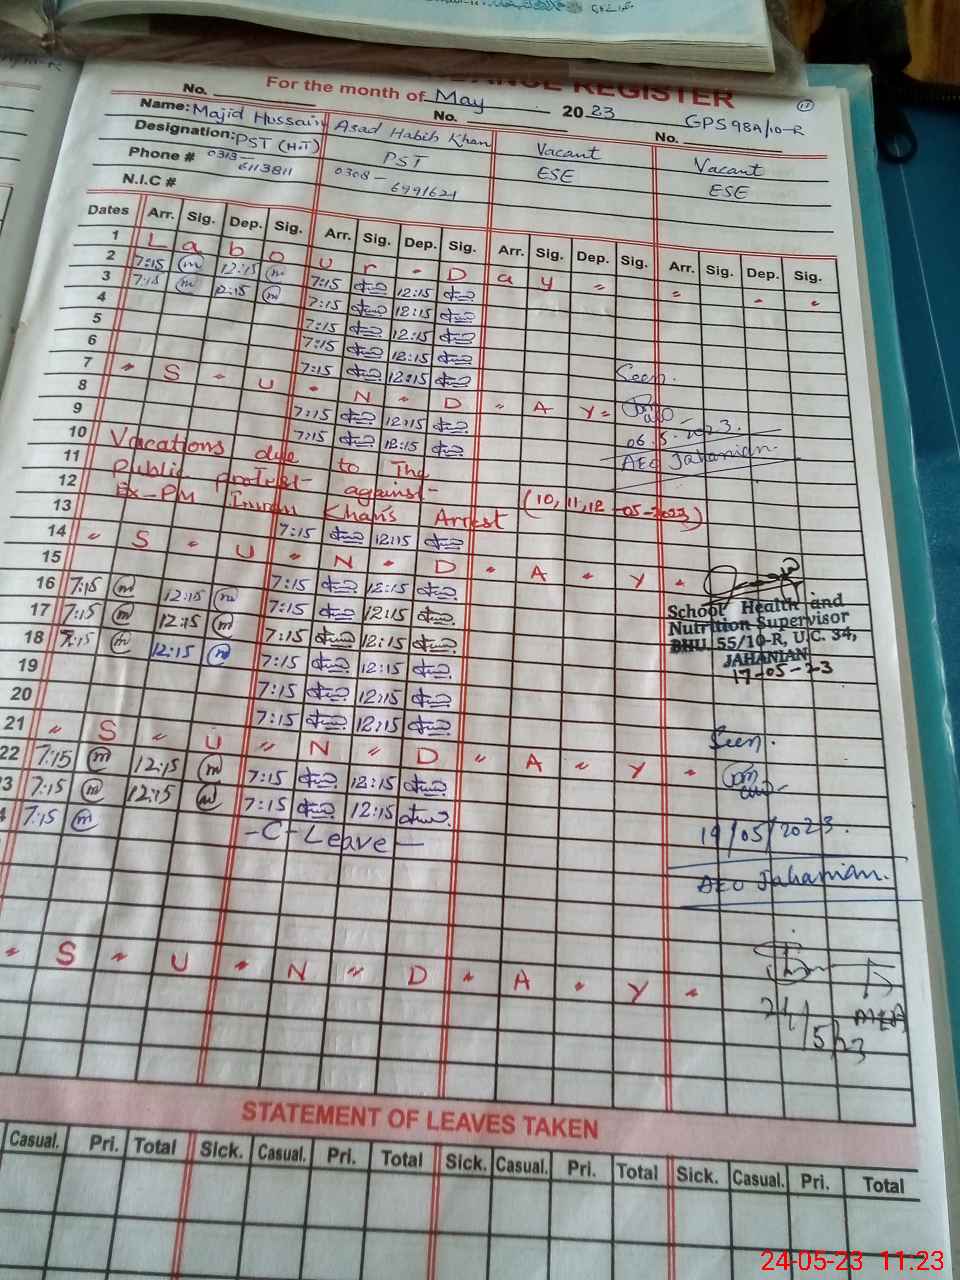 REGISTER
For the month of May 2023
No. No. No. GPS 98A/10-R
Name: Majid Hussain Asad Habib Khan Vacant Vacant
Designation: PST (H.T) PST ESE ESE
Phone # 0313-6113811 0308-6991621
N.I.C #
Dates Arr. Sig. Dep. Sig. Arr. Sig. Dep. Sig. Arr. Sig. Dep. Sig. Arr. Sig. Dep. Sig.
1 L a b o u r " D a y " " " "
2 7:15 m 12:15 m 7:15 12:15
3 7:15 m 12:15 m 7:15 12:15
4 7:15 12:15
5 7:15 12:15
6 7:15 12:15
7 " S " U " N " D " A Y "
8 7:15 12:15
9 7:15 12:15
Seen.
06.5.2023.
AEO Jahanian.
10 Vacations due to The
11 Public protest against
12 Ex-PM Imran Khan's Arrest (10, 11, 12-05-2023)
13 7:15 12:15
14 " S " U " N " D " A " Y "
15 7:15 12:15
16 7:15 m 12:15 m 7:15 12:15
17 7:15 m 12:15 m 7:15 12:15
18 7:15 m 12:15 m 7:15 12:15
19 7:15 12:15
20 7:15 12:15
School Health and
Nutrition Supervisor
BHU. 55/10-R, U.C. 34,
JAHANIAN
17-05-23
21 " S " U " N " D " A " Y "
22 7:15 m 12:15 m 7:15 12:15
3 7:15 m 12:15 m 7:15 12:15
4 7:15 m -C-Leave-
Seen.
19/05/2023.
AEO Jahanian.
" S " U " N " D " A " Y "
MEA
24/5/23
STATEMENT OF LEAVES TAKEN
Casual. Pri. Total Sick. Casual. Pri. Total Sick. Casual. Pri. Total Sick. Casual. Pri. Total
24-05-23 11:23